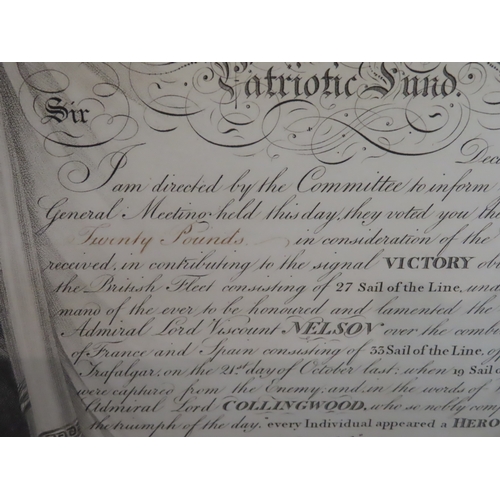 Patriotic Fund.
Sir
Dec
I am directed by the Committee to inform
General Meeting held this day, they voted you th
Twenty Pounds in consideration of the
received, in contributing to the signal VICTORY ob
the British Fleet consisting of 27 Sail of the Line, und
mand of the ever to be honoured and lamented the
Admiral Lord Viscount NELSON over the comb
of France and Spain consisting of 33 Sail of the Line, o
Trafalgar; on the 21st day of October last; when 19 Sail o
were captured from the Enemy; and, in the words of
Admiral Lord COLLINGWOOD, who so nobly comp
the triumph of the day, every Individual appeared a HERO